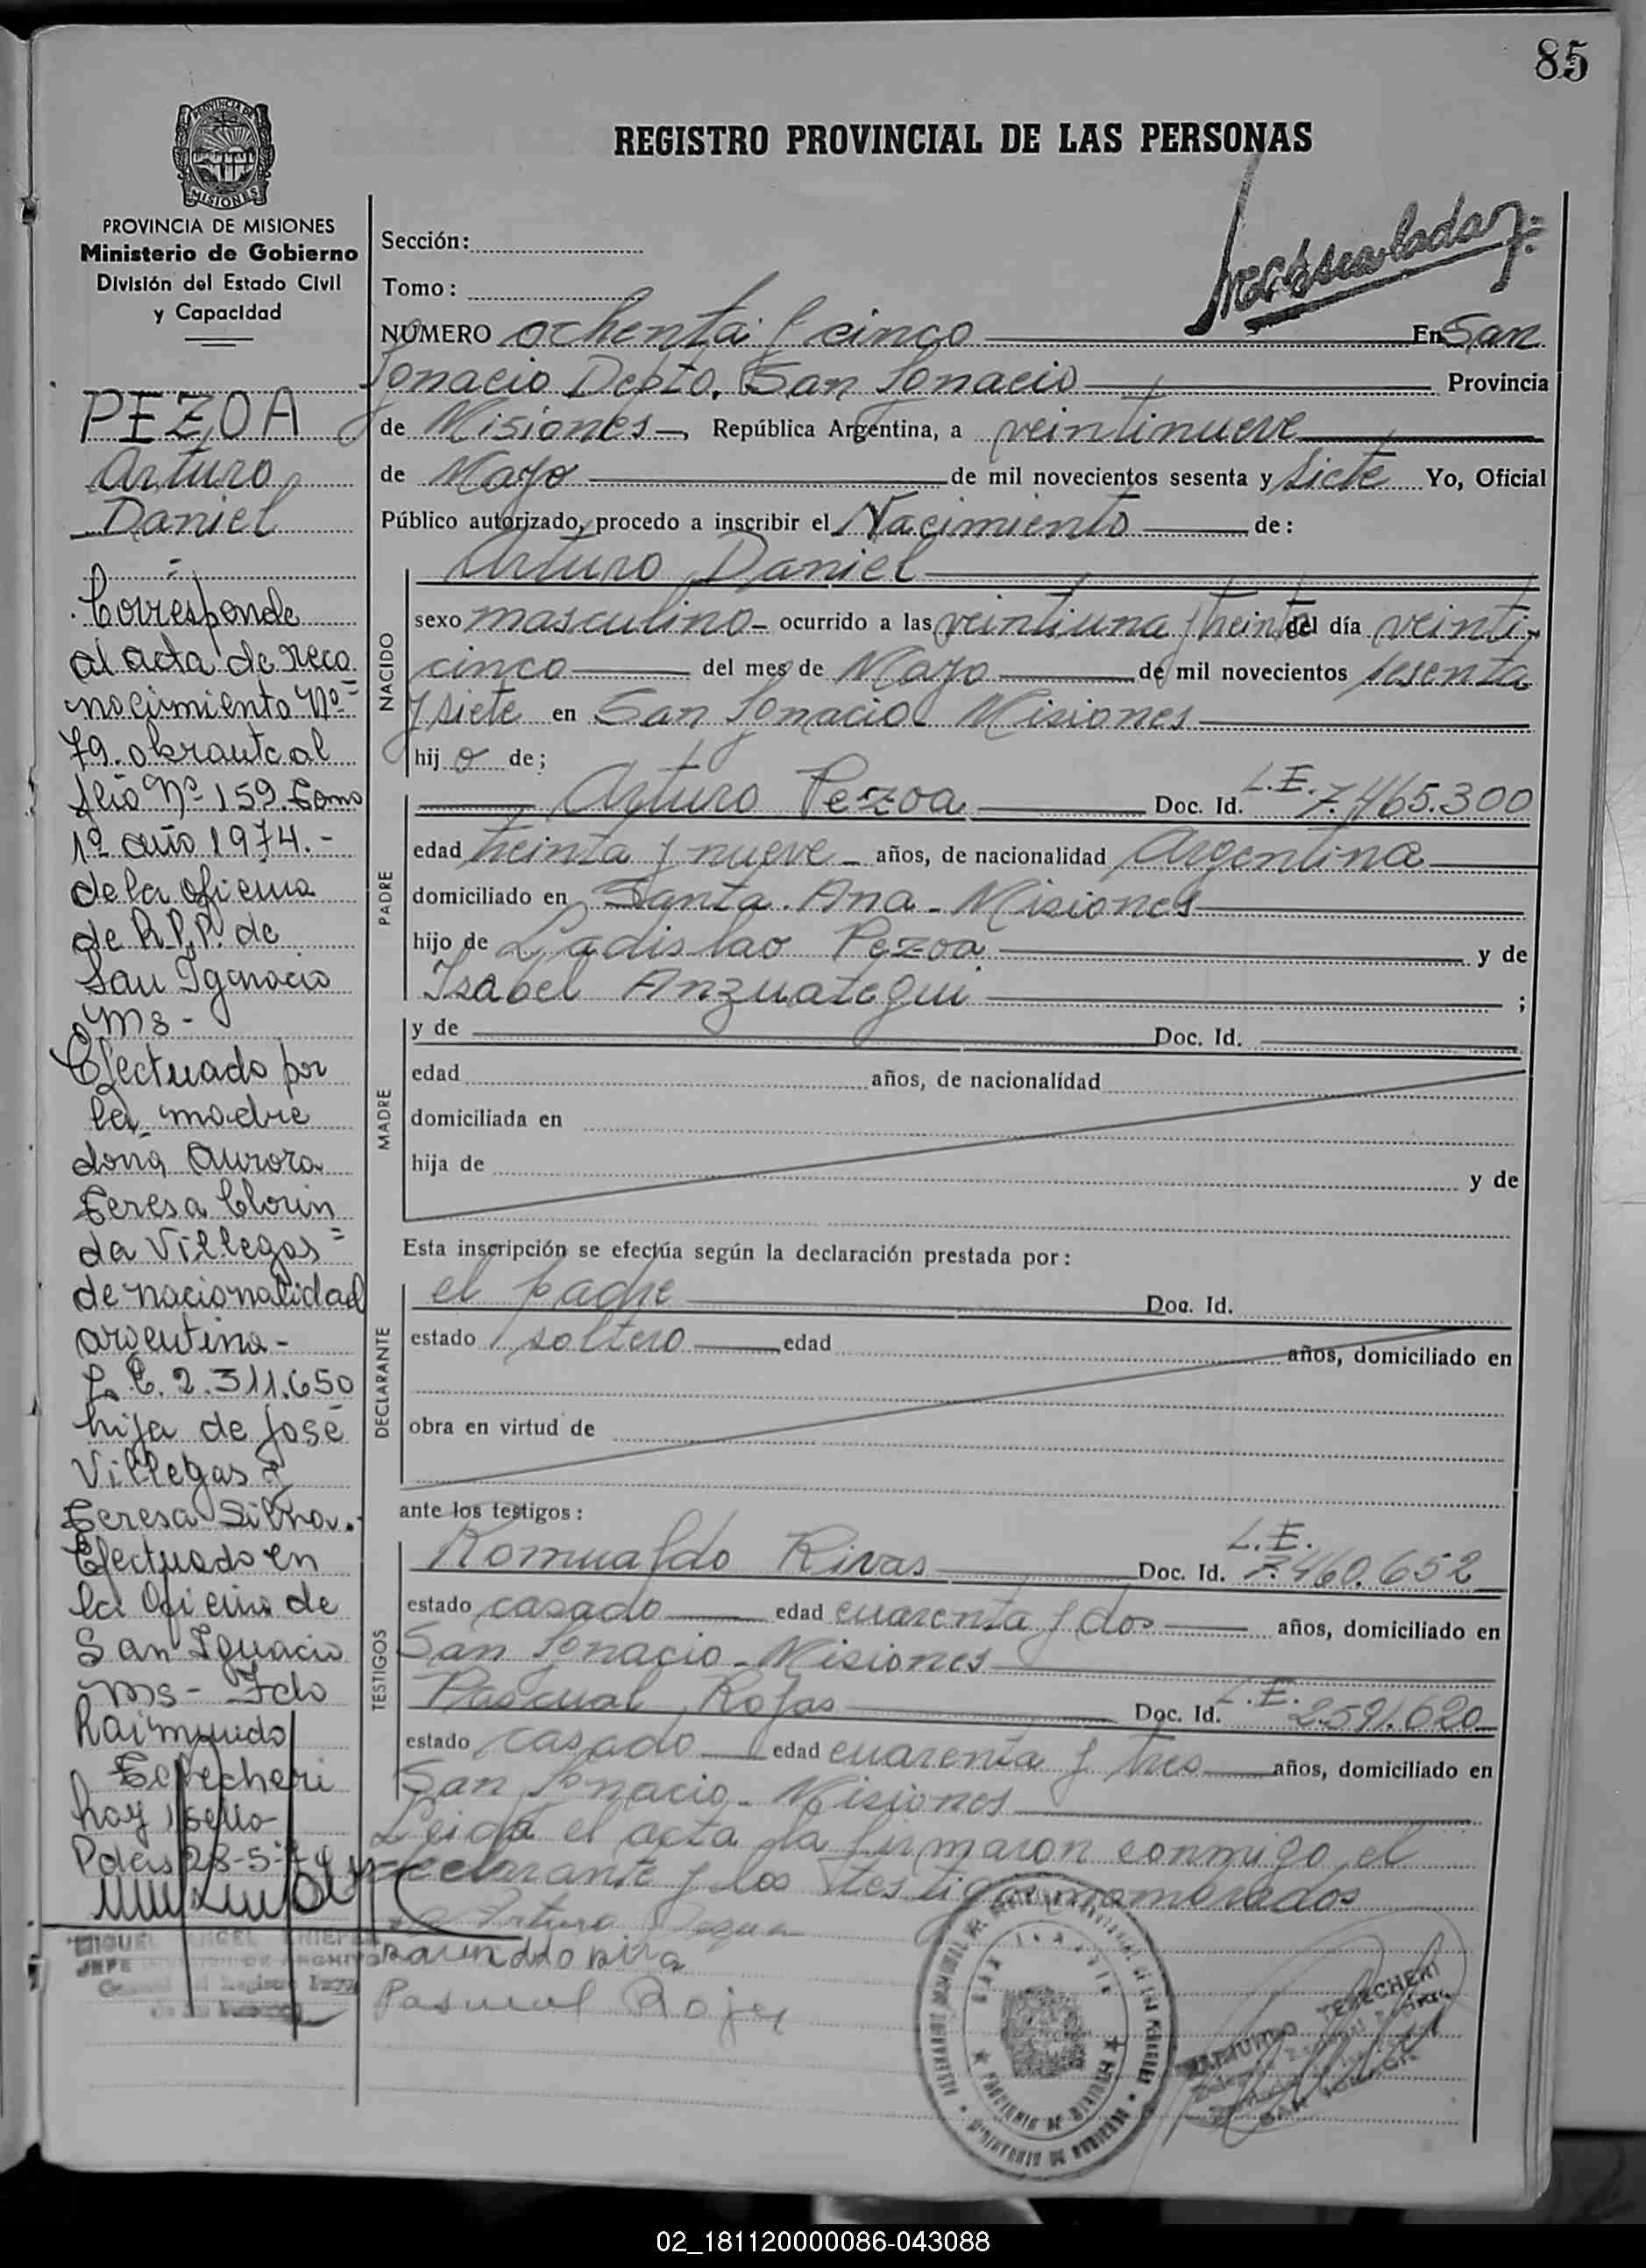 85
REGISTRO PROVINCIAL DE LAS PERSONAS
PROVINCIA DE MISIONES
Ministerio de Gobierno
División del Estado Civil
y Capacidad
PEZOA
Arturo
Daniel
Corresponde
al acta de reco
nocimiento Nº
79. obrante al
folio Nº 159. Tomo
1º año 1974.-
de la oficina
de R.P.P. de
San Igancio
Ms-
Efectuado por
la madre
dona Aurora
Teresa Clorin
da Villegas
de nacionalidad
argentina-
L.C. 2.311.650
hija de José
Villegas y
Teresa Silva.-
Efectuado en
la Oficina de
San Ignacio
Ms- Fdo
Raimundo
Terecheri
hay sello
Pdas 28-5-74
MIGUEL ANGEL
JEFE DE ARCHIVO
Sección:
Tomo:
NUMERO ochenta y cinco En San
Ignacio Depto. San Ignacio Provincia
de Misiones, República Argentina, a veintinueve
de Mayo de mil novecientos sesenta y siete Yo, Oficial
Público autorizado, procedo a inscribir el Nacimiento de:
Arturo Daniel
NACIDO
sexo masculino ocurrido a las veintiuna y treinta del día veinti-
cinco del mes de Mayo de mil novecientos sesenta
y siete en San Ignacio Misiones
hijo de;
PADRE
Arturo Pezoa Doc. Id. L.E. 7.465.300
edad treinta y nueve años, de nacionalidad Argentina
domiciliado en Santa Ana - Misiones
hijo de Ladislao Pezoa y de
Isabel Anzuategui ;
MADRE
y de Doc. Id.
edad años, de nacionalidad
domiciliada en
hija de y de
Esta inscripción se efectúa según la declaración prestada por:
DECLARANTE
el padre Doc. Id.
estado soltero edad años, domiciliado en
obra en virtud de
ante los testigos:
TESTIGOS
Romualdo Rivas Doc. Id. L.E. 7.460.652
estado casado edad cuarenta y dos años, domiciliado en
San Ignacio - Misiones
Pascual Rojas Doc. Id. L.E. 2.591.620
estado casado edad cuarenta y tres años, domiciliado en
San Ignacio - Misiones
Leida el acta la firmaron conmigo el
declarante y los testigos
Arturo
Pascual Rojas
RAIMUNDO TERECHERI
SAN IGNACIO
02_181120000086-043088